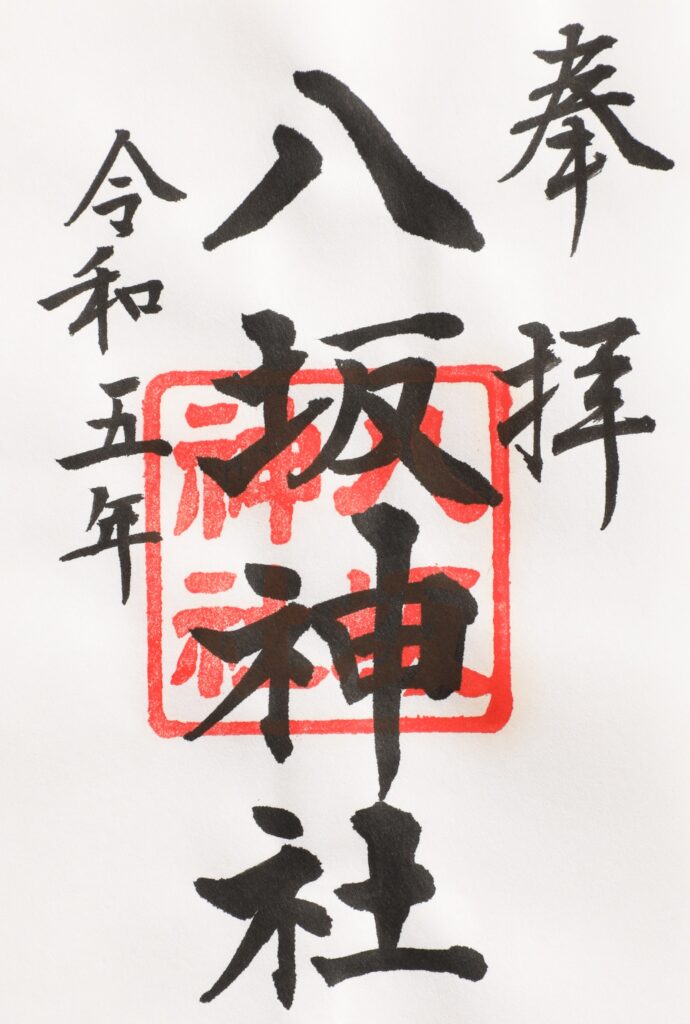 奉拝
八坂神社
令和五年
八坂
神社